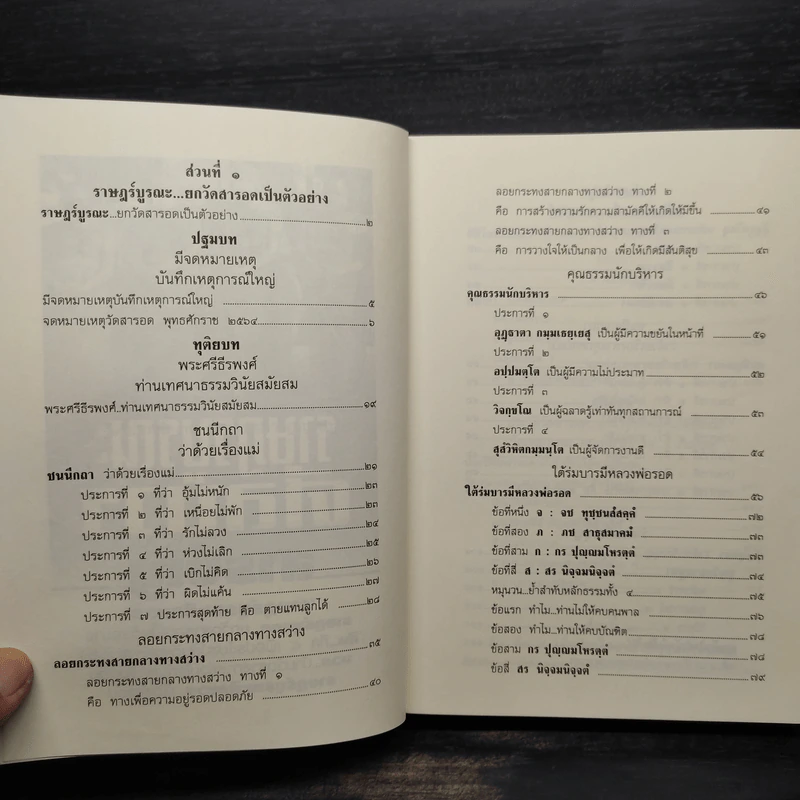 ส่วนที่ ๑
ราษฎร์บูรณะ...ยกวัดสารอดเป็นตัวอย่าง
ราษฎร์บูรณะ...ยกวัดสารอดเป็นตัวอย่าง ๒
ปฐมบท
มีจดหมายเหตุ
บันทึกเหตุการณ์ใหญ่
มีจดหมายเหตุบันทึกเหตุการณ์ใหญ่ ๕
จดหมายเหตุวัดสารอด พุทธศักราช ๒๕๖๔ ๖
ทุติยบท
พระศรีธีรพงศ์
ท่านเทศนาธรรมวินัยสมัยสม
พระศรีธีรพงศ์..ท่านเทศนาธรรมวินัยสมัยสม ๑๙
ชนนีกถา
ว่าด้วยเรื่องแม่
ชนนีกถา ว่าด้วยเรื่องแม่ ๒๑
ประการที่ ๑ ที่ว่า อุ้มไม่หนัก ๒๓
ประการที่ ๒ ที่ว่า เหนื่อยไม่พัก ๒๓
ประการที่ ๓ ที่ว่า รักไม่ลวง ๒๔
ประการที่ ๔ ที่ว่า ห่วงไม่เลิก ๒๕
ประการที่ ๕ ที่ว่า เบิกไม่คิด ๒๖
ประการที่ ๖ ที่ว่า ผิดไม่แค้น ๒๗
ประการที่ ๗ ประการสุดท้าย คือ ตายแทนลูกได้ ๒๘
ลอยกระทงสายกลางทางสว่าง
ลอยกระทงสายกลางทางสว่าง ๓๕
ลอยกระทงสายกลางทางสว่าง ทางที่ ๑
คือ ทางเพื่อความอยู่รอดปลอดภัย ๔๐
ลอยกระทงสายกลางทางสว่าง ทางที่ ๒
คือ การสร้างความรักความสามัคคีให้เกิดให้มีขึ้น ๔๑
ลอยกระทงสายกลางทางสว่าง ทางที่ ๓
คือ การวางใจให้เป็นกลาง เพื่อให้เกิดมีสันติสุข ๔๓
คุณธรรมนักบริหาร
คุณธรรมนักบริหาร ๔๖
ประการที่ ๑
อุฏฺฐาตา กมฺมเธยฺเยสุ เป็นผู้มีความขยันในหน้าที่ ๕๑
ประการที่ ๒
อปฺปมตฺโต เป็นผู้มีความไม่ประมาท ๕๒
ประการที่ ๓
วิจกฺขโณ เป็นผู้ฉลาดรู้เท่าทันทุกสถานการณ์ ๕๓
ประการที่ ๔
สุสํวิหิตกมฺมนฺโต เป็นผู้จัดการงานดี ๕๔
ใต้ร่มบารมีหลวงพ่อรอด
ใต้ร่มบารมีหลวงพ่อรอด ๕๖
ข้อที่หนึ่ง จ : จช ทุชฺชนสํสคฺคํ ๗๒
ข้อที่สอง ภ : ภช สาธุสมาคมํ ๗๓
ข้อที่สาม ก : กร ปุญฺญมโหรตฺตํ ๗๓
ข้อที่สี่ ส : สร นิจฺจมนิจฺจตํ ๗๔
หมุนวน...ย้ำสำทับหลักธรรมทั้ง ๔ ๗๕
ข้อแรก ทำไม...ท่านไม่ให้คบคนพาล ๗๖
ข้อสอง ทำไม...ท่านให้คบบัณฑิต ๗๘
ข้อสาม กร ปุญฺญมโหรตฺตํ ๗๘
ข้อสี่ สร นิจฺจมนิจฺจตํ ๗๙